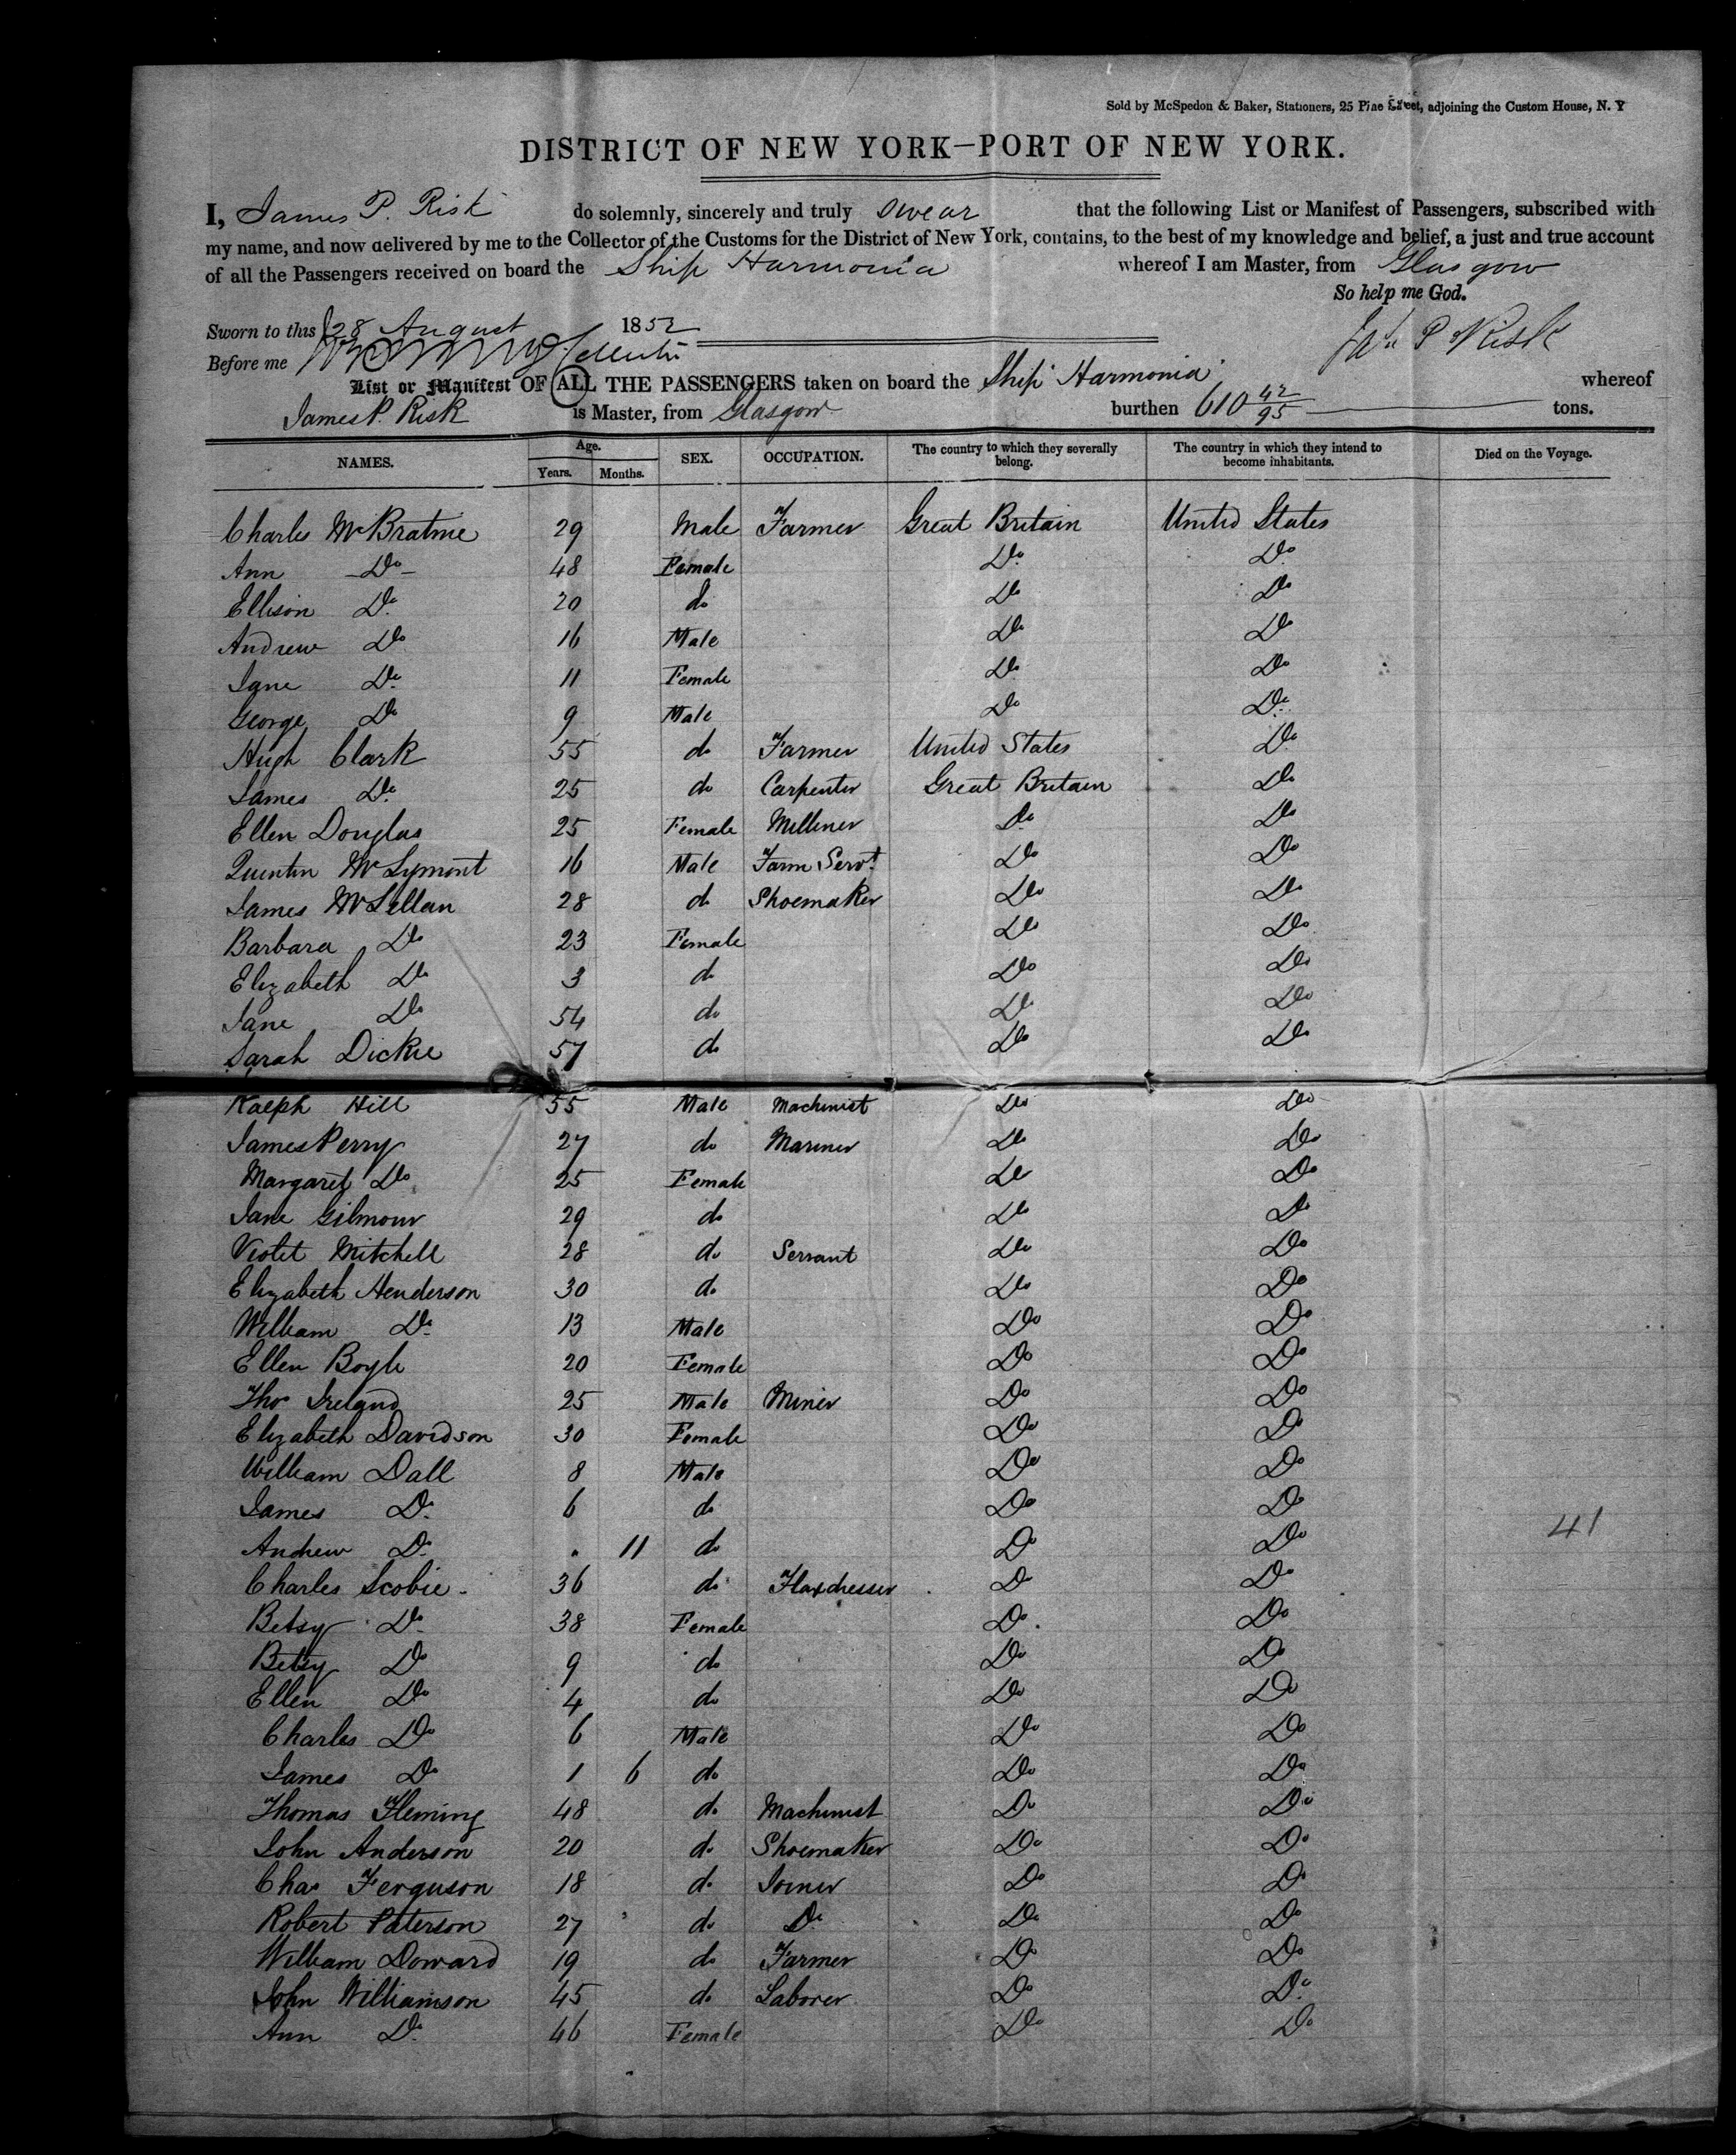 Sold by McSpedon & Baker, Stationers, 25 Pine Street, adjoining the Custom House, N. Y
DISTRICT OF NEW YORK—PORT OF NEW YORK.
I, James P. Risk do solemnly, sincerely and truly swear that the following List or Manifest of Passengers, subscribed with
my name, and now delivered by me to the Collector of the Customs for the District of New York, contains, to the best of my knowledge and belief, a just and true account
of all the Passengers received on board the Ship Harmonia whereof I am Master, from Glasgow
So help me God.
Sworn to this 28 August 1852
Jas P Risk
Before me
List or Manifest OF ALL THE PASSENGERS taken on board the Ship Harmonia whereof
James P. Risk is Master, from Glasgow burthen 610 42/95 tons.
NAMES. Age. Years. Months. SEX. OCCUPATION. The country to which they severally belong. The country in which they intend to become inhabitants. Died on the Voyage.
Charles McBratnie 29 Male Farmer Great Britain United States
Ann Do 48 Female Do Do
Ellison Do 20 do Do Do
Andrew Do 16 Male Do Do
Jane Do 11 Female Do Do
George Do 9 Male Do Do
Hugh Clark 55 do Farmer United States Do
James Do 25 do Carpenter Great Britain Do
Ellen Douglas 25 Female Milliner Do Do
Quintin McLymont 16 Male Farm Servt Do Do
James McLellan 28 do Shoemaker Do Do
Barbara Do 23 Female Do Do
Elizabeth Do 3 do Do Do
Jane Do 54 do Do Do
Sarah Dickie 57 do Do Do
Ralph Hill 55 Male Machinist Do Do
James Perry 27 do Mariner Do Do
Margaret Do 25 Female Do Do
Jane Gilmour 29 do Do Do
Violet Mitchell 28 do Servant Do Do
Elizabeth Henderson 30 do Do Do
William Do 13 Male Do Do
Ellen Boyle 20 Female Do Do
Thos Ireland 25 Male Miner Do Do
Elizabeth Davidson 30 Female Do Do
William Dall 8 Male Do Do
James Do 6 do Do Do
Andrew Do . 11 do Do Do 41
Charles Scobie 36 do Flaxdresser Do Do
Betsy Do 38 Female Do Do
Betsy Do 9 do Do Do
Ellen Do 4 do Do Do
Charles Do 6 Male Do Do
James Do 1 6 do Do Do
Thomas Fleming 48 do Machinist Do Do
John Anderson 20 do Shoemaker Do Do
Chas Ferguson 18 do Joiner Do Do
Robert Paterson 27 do Do Do Do
William Doward 19 do Farmer Do Do
John Williamson 45 do Laborer Do Do
Ann Do 46 Female Do Do